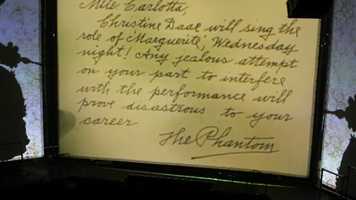 Mlle Carlotta,
Christine Daae will sing the
role of 'Marguerite', Wednesday
night! Any jealous attempt
on your part to interfere
with the performance will
prove disastrous to your
career
The Phantom